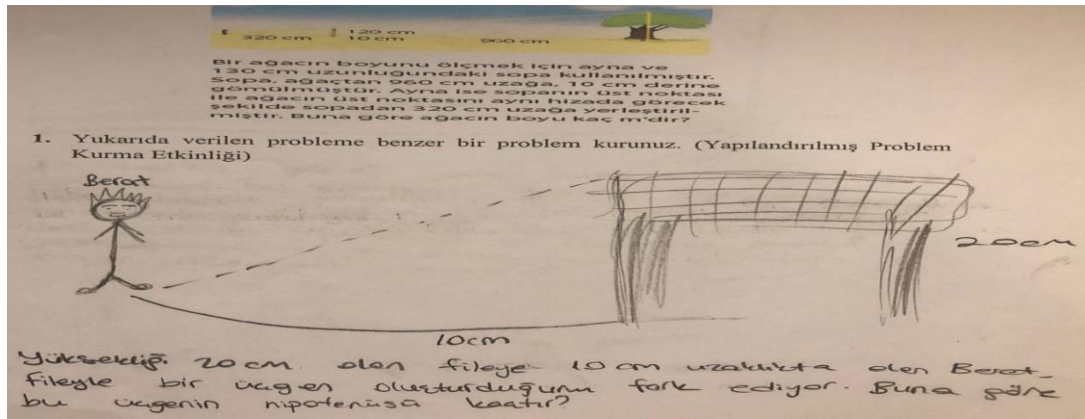 320 cm
120 cm
10 cm
960 cm
Bir ağacın boyunu ölçmek için ayna ve
130 cm uzunluğundaki sopa kullanılmıştır.
Sopa, ağaçtan 960 cm uzağa, 10 cm derine
gömülmüştür. Ayna ise sopanın üst noktası
ile ağacın üst noktasını aynı hizada görecek
şekilde sopadan 320 cm uzağa yerleştiril-
miştir. Buna göre ağacın boyu kaç m'dir?
1. Yukarıda verilen probleme benzer bir problem kurunuz. (Yapılandırılmış Problem
Kurma Etkinliği)
Berat
20cm
10cm
Yüksekliği 20 cm olan fileye 10 cm uzaklıkta olan Berat
fileyle bir üçgen oluşturduğunu fark ediyor. Buna göre
bu üçgenin hipotenüsü kaçtır?